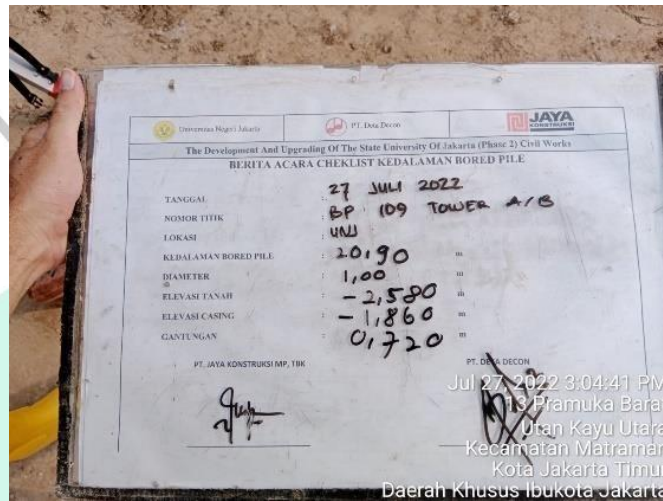 Universitas Negeri Jakarta
PT. Deta Decon
JAYA
KONSTRUKSI
The Development And Upgrading Of The State University Of Jakarta (Phase 2) Civil Works
BERITA ACARA CHEKLIST KEDALAMAN BORED PILE
TANGGAL : 27 JULI 2022
NOMOR TITIK : BP 109 TOWER A/B
LOKASI : UNJ
KEDALAMAN BORED PILE : 20,90 m
DIAMETER : 1,00 m
ELEVASI TANAH : -2,580 m
ELEVASI CASING : -1,860 m
GANTUNGAN : 0,720 m
PT. JAYA KONSTRUKSI MP, TBK
PT. DETA DECON
Jul 27, 2022 3:04:41 PM
13 Pramuka Barat
Utan Kayu Utara
Kecamatan Matraman
Kota Jakarta Timur
Daerah Khusus Ibukota Jakarta